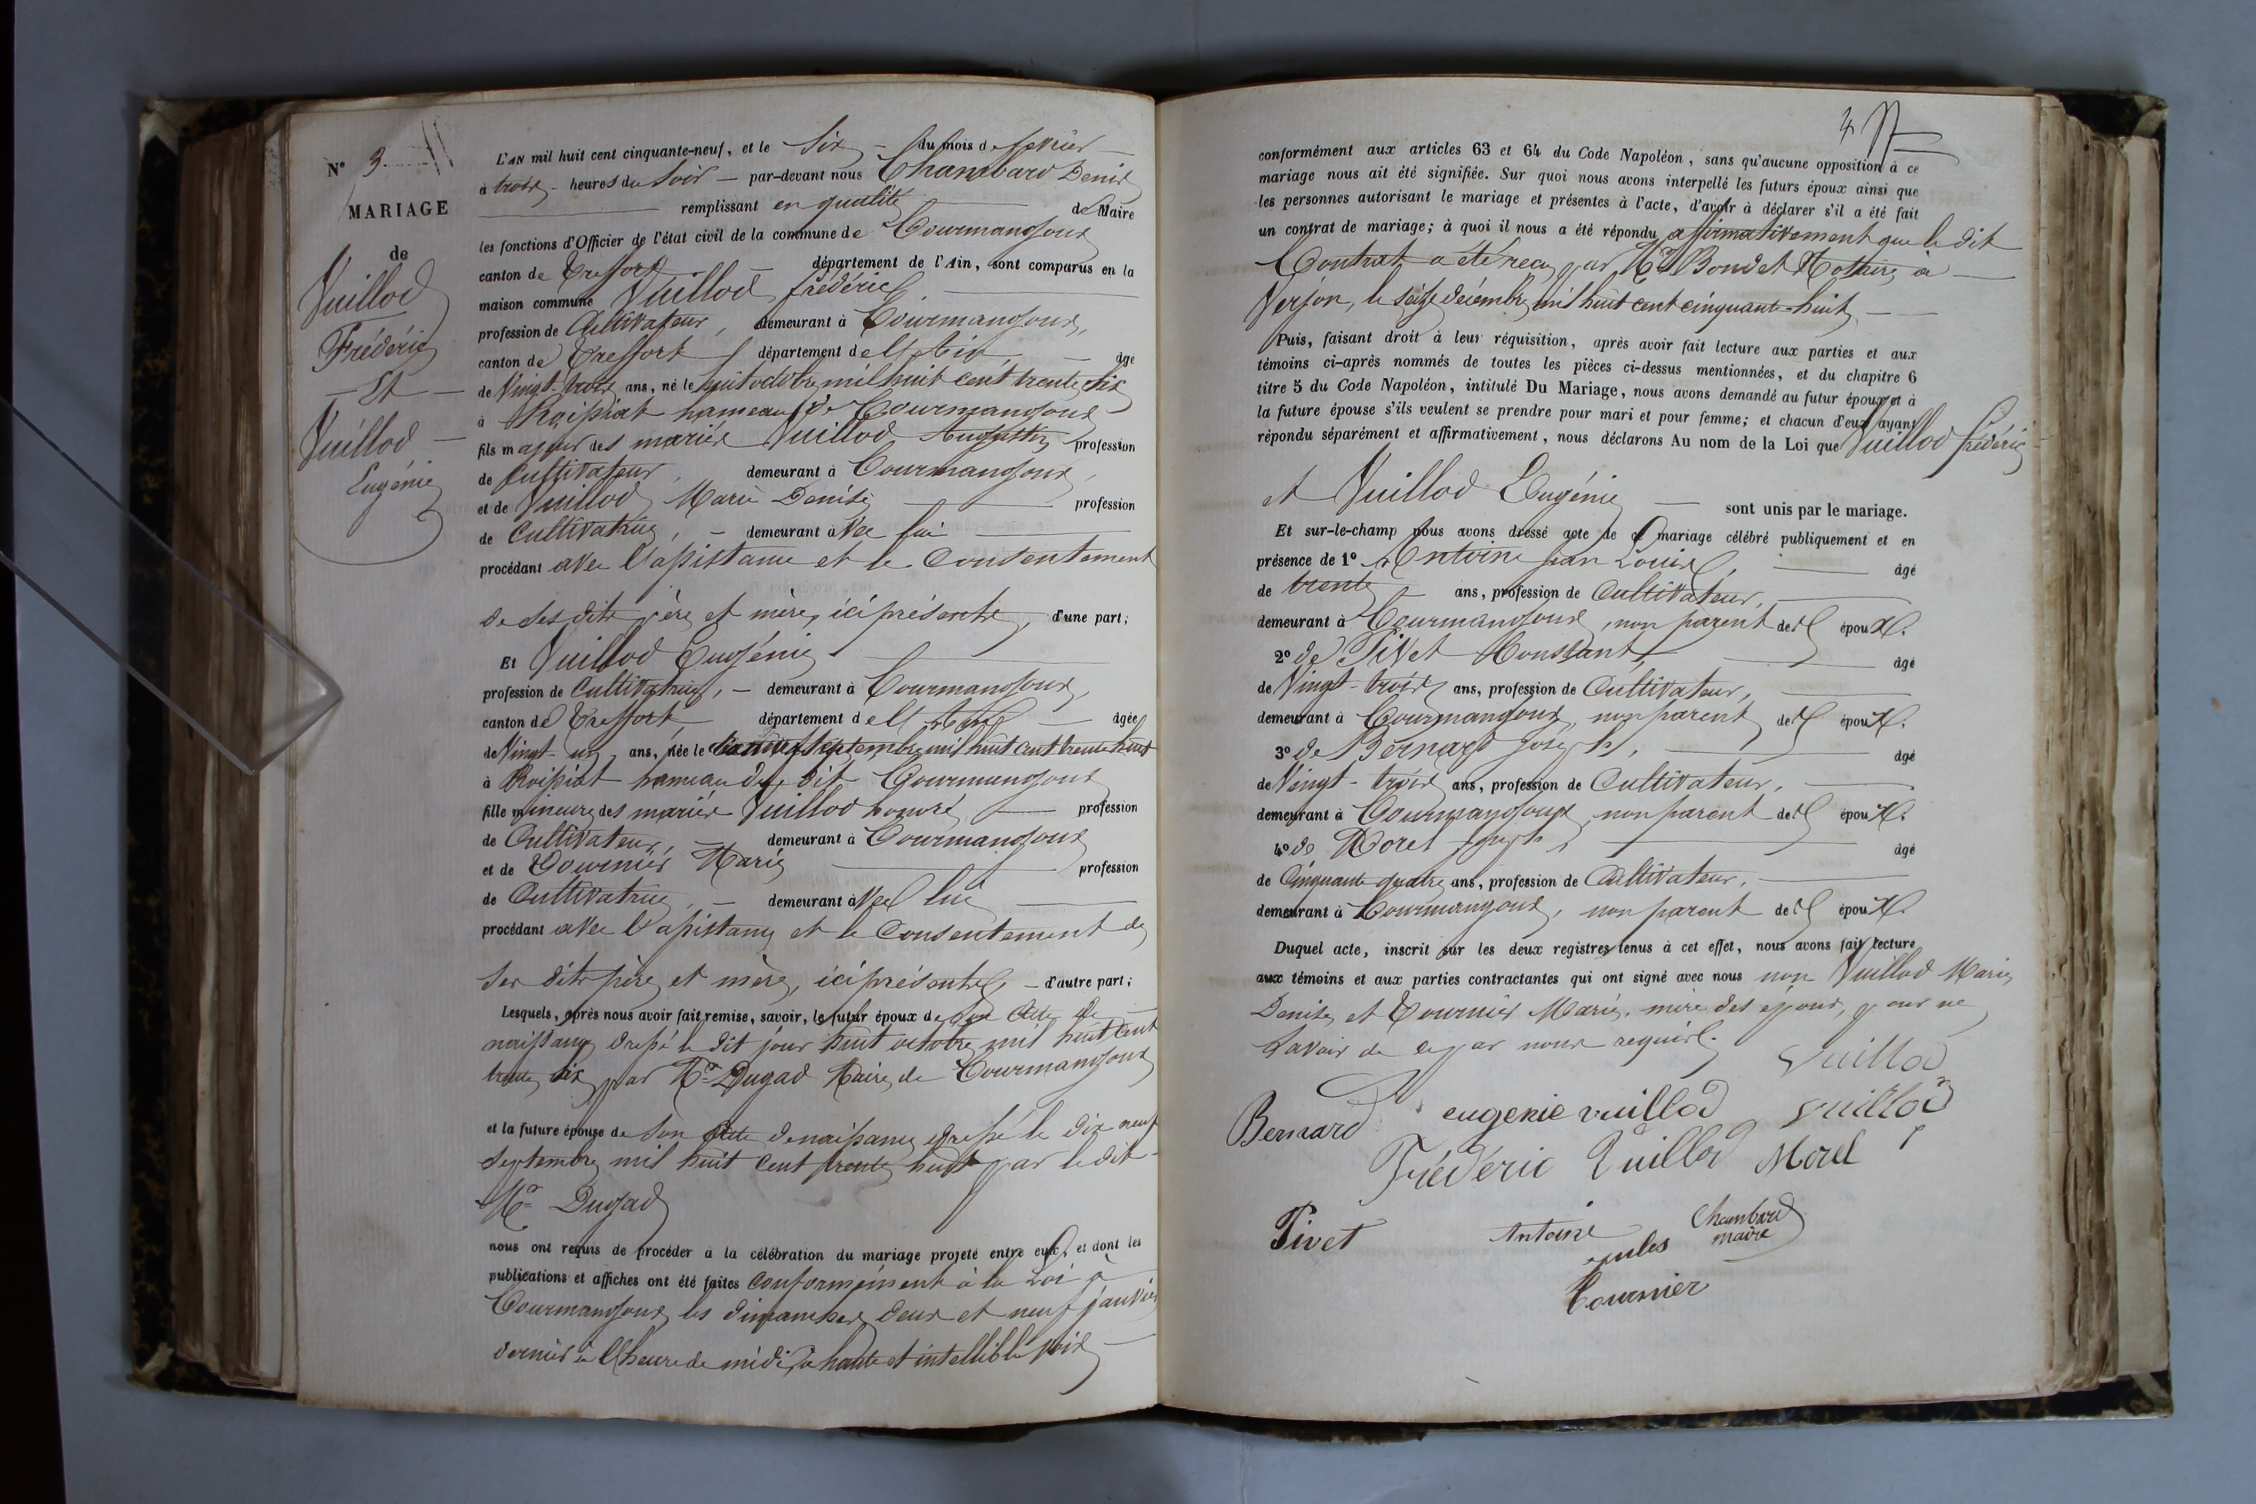 N° 3.
MARIAGE
de
Vuillod
Frédéric
Et
Vuillod
Eugénie
L'AN mil huit cent cinquante-neuf, et le Six du mois de février
à trois heures du Soir par-devant nous Chambard Denis
remplissant en qualité de Maire
les fonctions d'Officier de l'état civil de la commune de Courmangoux
canton de Treffort département de l'Ain, sont comparus en la
maison commune Vuillod frédéric
profession de Cultivateur, demeurant à Courmangoux,
canton de Treffort département de l'Ain, âgé
de Vingt-trois ans, né le huit octobre mil huit cent trente six
à Roissiat hameau de Courmangoux
fils majeur des mariés Vuillod Augustin profession
de Cultivateur, demeurant à Courmangoux,
et de Vuillod Marie Denise profession
de Cultivatrice, demeurant avec lui
procédant avec l'assistance et le Consentement
de ses dits père et mère, ici présents, d'une part;
Et Vuillod Eugénie
profession de Cultivatrice, demeurant à Courmangoux,
canton de Treffort département de l'Ain âgée
de Vingt-un ans, née le dix neuf septembre mil huit cent trente huit
à Roissiat hameau du dit Courmangoux
fille mineure des mariés Vuillod honoré profession
de Cultivateur, demeurant à Courmangoux
et de Tournier Marie profession
de Cultivatrice, demeurant avec lui
procédant avec l'assistance et le Consentement de
ses dits père et mère, ici présents, d'autre part;
Lesquels, après nous avoir fait remise, savoir, le futur époux de son acte de
naissance dressé le dit jour huit octobre mil huit cent
trente six par Mr Dugad Maire de Courmangoux
et la future épouse de son acte de naissance dressé le dix neuf
septembre mil huit cent trente huit par le dit
Mr Dugad
nous ont requis de procéder à la célébration du mariage projeté entre eux, et dont les
publications et affiches ont été faites conformément à la Loi à
Courmangoux les dimanches deux et neuf janvier
dernier à l'heure de midi, à haute et intelligible voix
4
conformément aux articles 63 et 64 du Code Napoléon, sans qu'aucune opposition à ce
mariage nous ait été signifiée. Sur quoi nous avons interpellé les futurs époux ainsi que
les personnes autorisant le mariage et présentes à l'acte, d'avoir à déclarer s'il a été fait
un contrat de mariage; à quoi il nous a été répondu affirmativement que le dit
Contrat a été reçu par Me Bondet Notaire à
Verjon, le seize décembre mil huit cent cinquante-huit,
Puis, faisant droit à leur réquisition, après avoir fait lecture aux parties et aux
témoins ci-après nommés de toutes les pièces ci-dessus mentionnées, et du chapitre 6
titre 5 du Code Napoléon, intitulé Du Mariage, nous avons demandé au futur époux et à
la future épouse s'ils veulent se prendre pour mari et pour femme; et chacun d'eux ayant
répondu séparément et affirmativement, nous déclarons Au nom de la Loi que Vuillod frédéric
et Vuillod Eugénie sont unis par le mariage.
Et sur-le-champ nous avons dressé acte de ce mariage célébré publiquement et en
présence de 1° Antoine Jean Louis, âgé
de trente ans, profession de Cultivateur,
demeurant à Courmangoux, non parent des époux.
2° de Pivet Constant, âgé
de Vingt-trois ans, profession de Cultivateur,
demeurant à Courmangoux, non parent des époux.
3° de Bernard Joseph, âgé
de Vingt-trois ans, profession de Cultivateur,
demeurant à Courmangoux, non parent des époux.
4° de Morel Joseph, âgé
de Cinquante quatre ans, profession de Cultivateur,
demeurant à Courmangoux, non parent des époux.
Duquel acte, inscrit sur les deux registres tenus à cet effet, nous avons fait lecture
aux témoins et aux parties contractantes qui ont signé avec nous non Vuillod Marie
Denise et Tournier Marie, mère des époux, pour ne
savoir de ce par nous requis.
Vuillod
Bernard eugenie vuillod vuillod
Frédéric Vuillod Morel
Pivet Antoine Chambard
maire
jules
Tournier